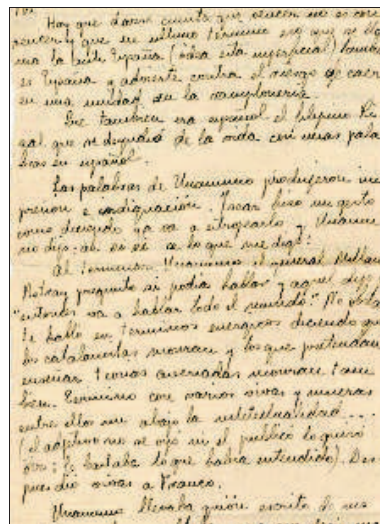 Hay que darse cuenta que vencer no es con
vencer y que en ultimo termino eso que se lla
ma la Anti España (idea esta superficial) tambien
es España y advierte contra el riesgo de caer
en una unidad en la
Dice tambien era español el filipino Ri
zal que se despidió de la vida con unas pala
bras en español.
Las palabras de Unamuno produjeron im
presion e indignación. hizo un gesto
como diciendo ya va a y Unamu
no dijo: ah si si se lo que me digo!
Al terminar Unamuno el general Millan
Astray pregunto si podia hablar y aquel dijo
"entonces va a hablar todo el mundo". No obstan
te habló en terminos energicos diciendo que
los catalanistas moriran y los que pretendan
enseñar teorias moriran tam
bien. Termino con varios vivas y mueras
entre ellos un abajo la intelectualidad....
(el adjetivo no se oyó ni el publico lo quiso
oir: le bastaba lo que habia entendido). Des
pues dio vivas a Franco.
Unamuno llevaba guión escrito de sus